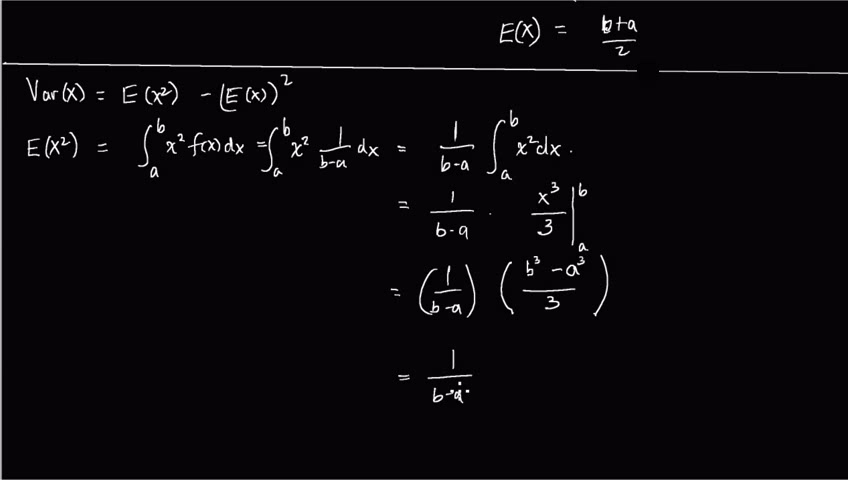 E(X) = b+a/2
Var(x) = E(x²) - (E(x))²
E(X²) = ∫_a^b x² f(x) dx = ∫_a^b x² 1/(b-a) dx = 1/(b-a) ∫_a^b x² dx.
= 1/(b-a) · x³/3 |_a^b
= (1/(b-a)) ((b³ - a³)/3)
= 1/(b-a)